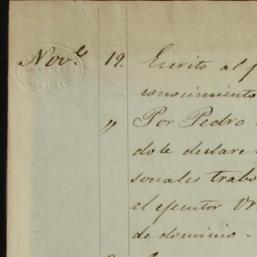 Nov.e 19. Escrito al p
conocimiento
" Por Pedro
dole declare
sonales trabo
el ejecutor Or
de dominio.-